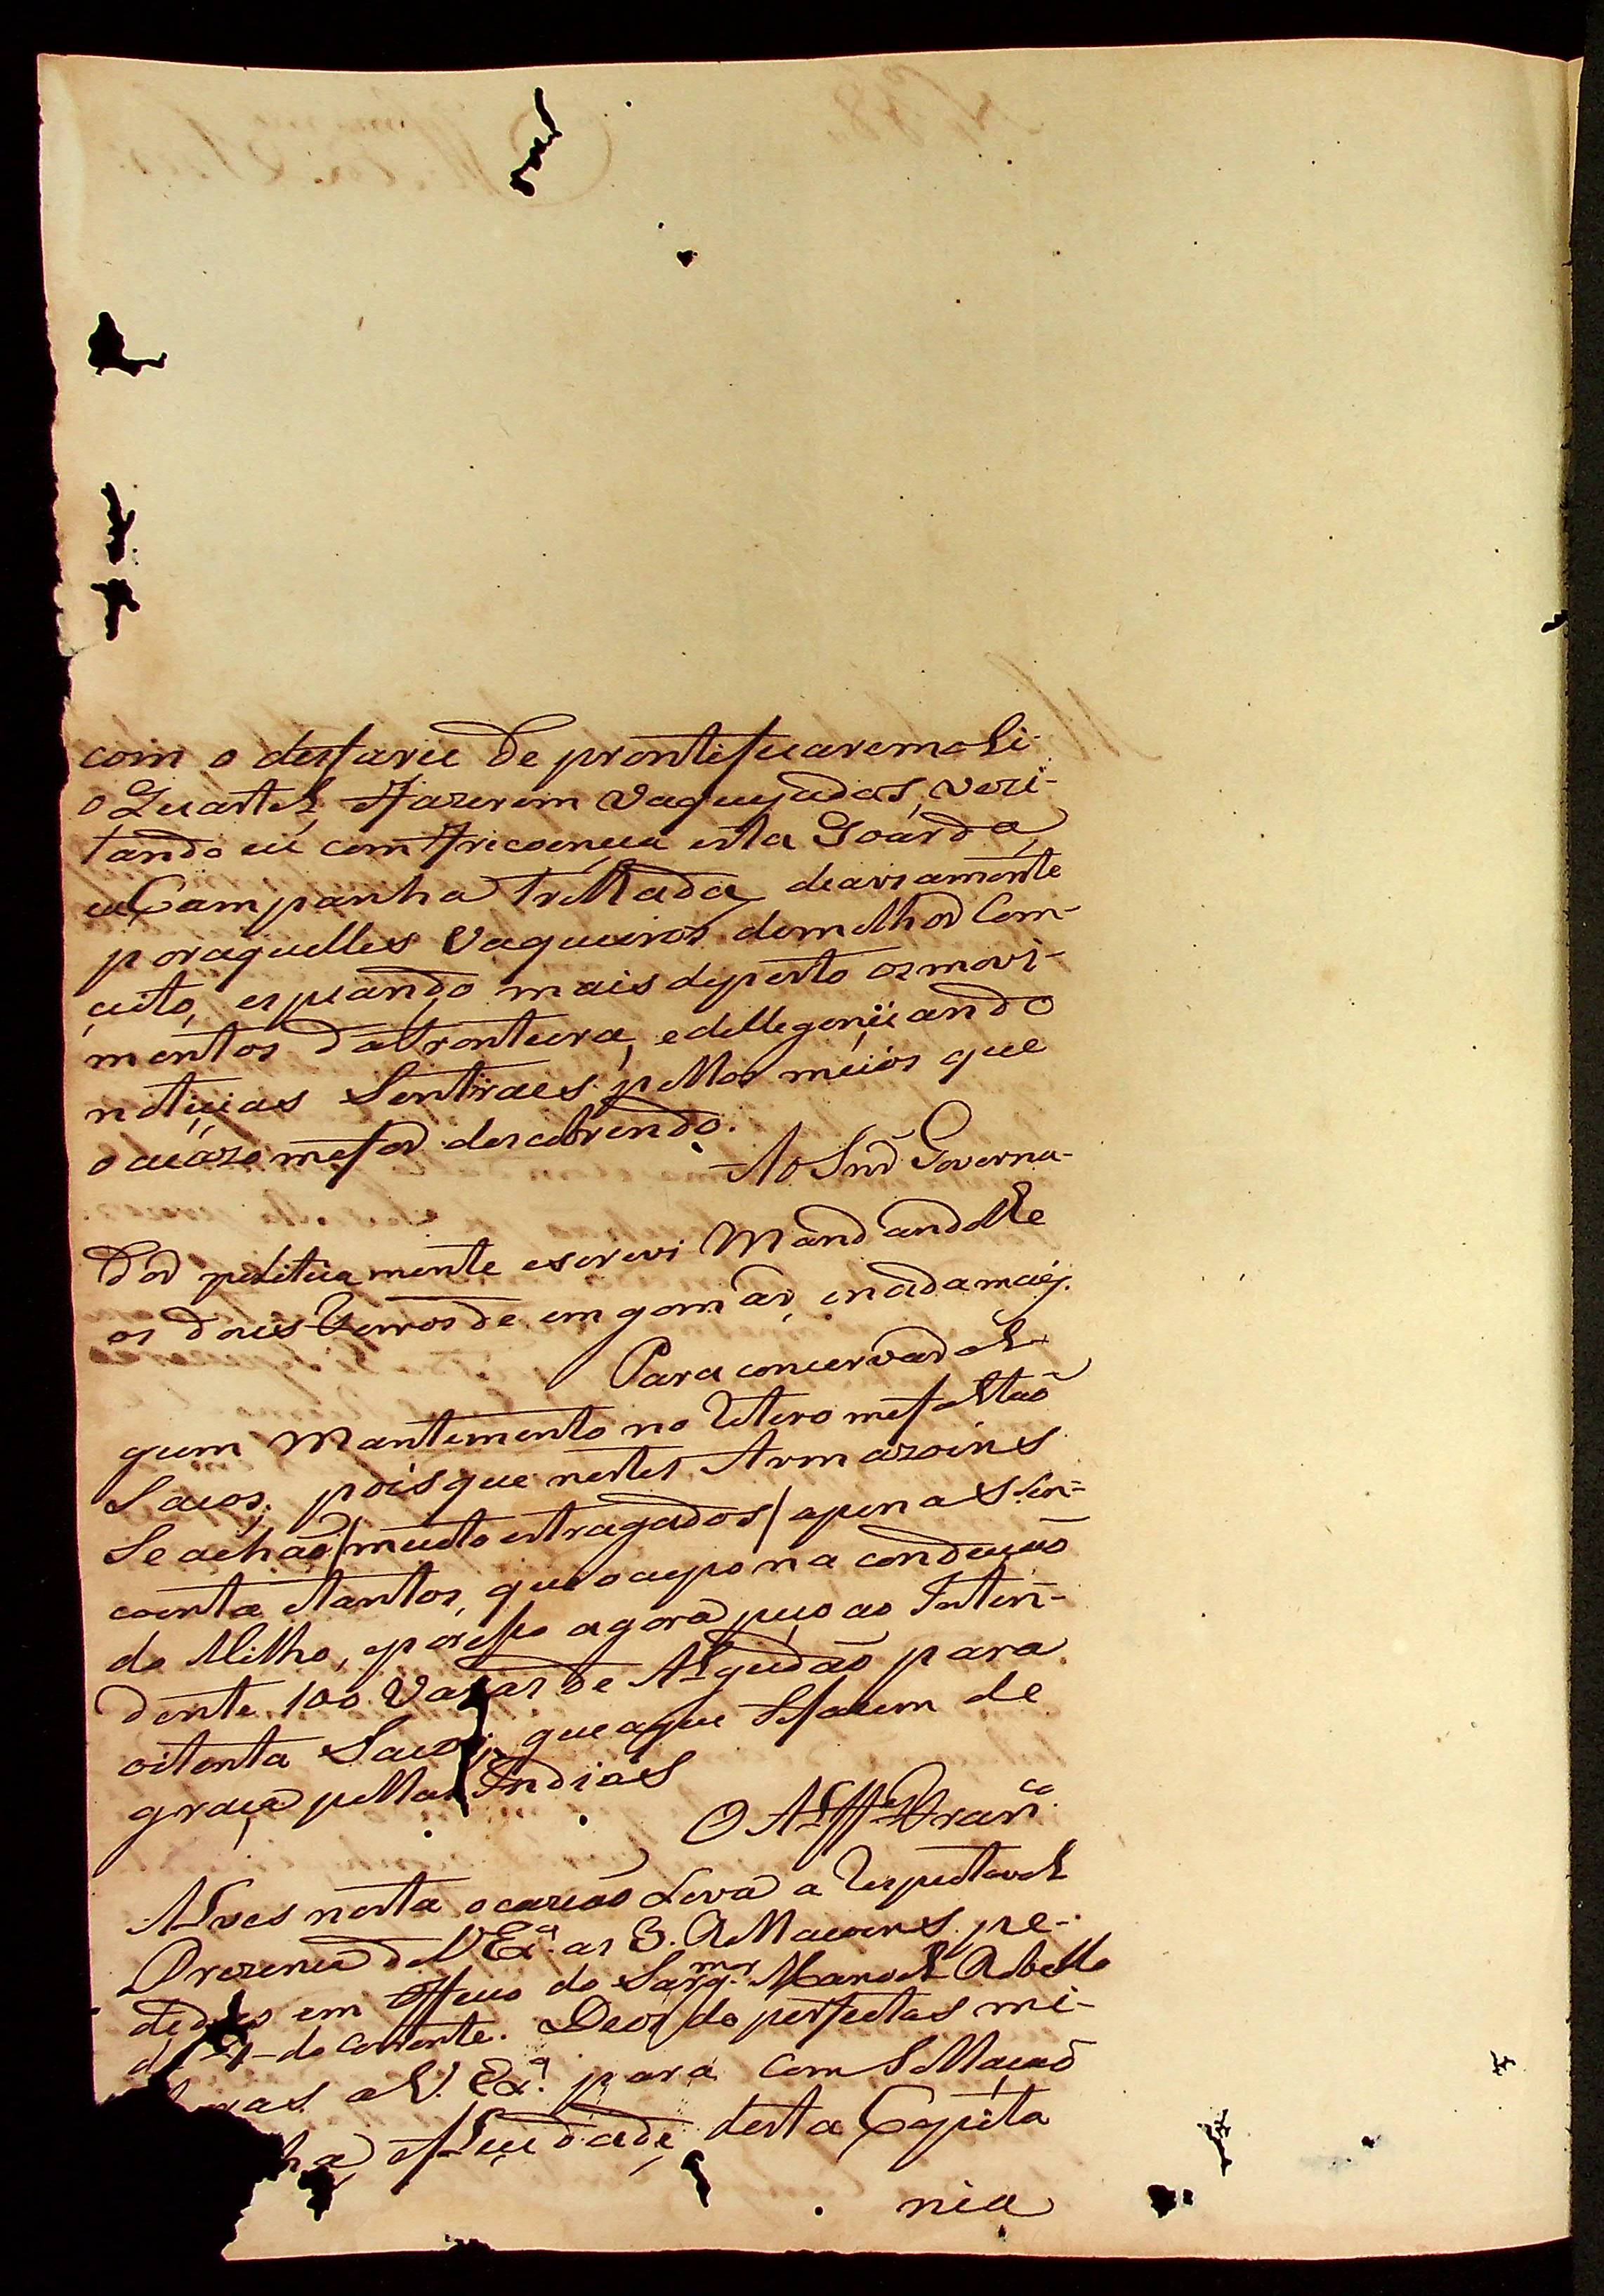 com o desfarce de prontificarem ali
o Quartel, e fazerem Vaquejadas, vezi-
tando eu com frecoencia esta Goarda,
e a Campanha trilhada deariamente
por aquelles Vaqueiros de milhor Com-
ceito, espiando mais de perto os movi-
mentos da Fronteira, e delligenciando
noticias Sentraes pellos meios que
o acazo me for descobrindo.
Ao Snr Governa-
dor politicamente escrevi Mandandolhe
os dous Ferros de emgomar, e nada mais.
Para concervar al-
gum Mantemento no Retiro me faltão
Sacos; pois que nestes Armazoins
Se achão / muito estragados / apenas Sin-
coenta e tantos, que ocupo na condução
do Milho, e por isso agora peço ao Inten-
dente 100 Varas de Algudão para
oitenta Sacos, que aque se fazem de
graça pellas Indias
O Alf.e Fran.co
Alves nesta ocazião Leva a Respeitavel
Prezença de V Ex.a as 3. Rellaçoens pe-
didas em Officio do Sarg.mor Manoel Rebello
de 4 do Corrente. Deos do perfeitas mi-
ras a V. Ex.a para Comsollação
e felicidade desta Capita
nia